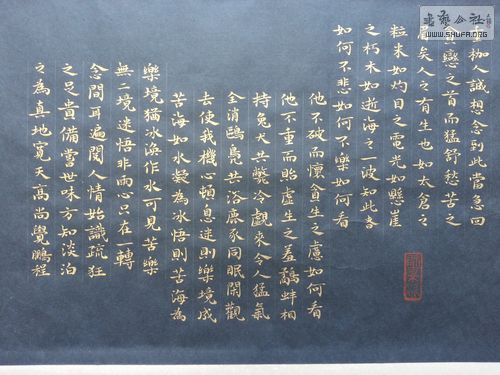 書藝公社
WWW.SHUFA.ORG
重枷人誠想念到此當急回
貪戀之首而猛舒愁苦之
眉矣人之有生也如太倉之
粒米如灼目之電光如懸崖
之朽木如逝海之一波知此者
如何不悲如何不樂如何看
他不破而懷貪生之慮如何看
他不重而貽虛生之羞鷸蚌相
持兔犬共斃冷覷來令人猛氣
全消鷗鳧共浴鹿豕同眠閒觀
去使我機心頓息迷則樂境成
苦海如水凝為冰悟則苦海為
樂境猶冰渙作水可見苦樂
無二境迷悟非兩心只在一轉
念間耳遍閱人情始識疏狂
之足貴備嘗世味方知淡泊
之為真地寬天高尚覺鵬程